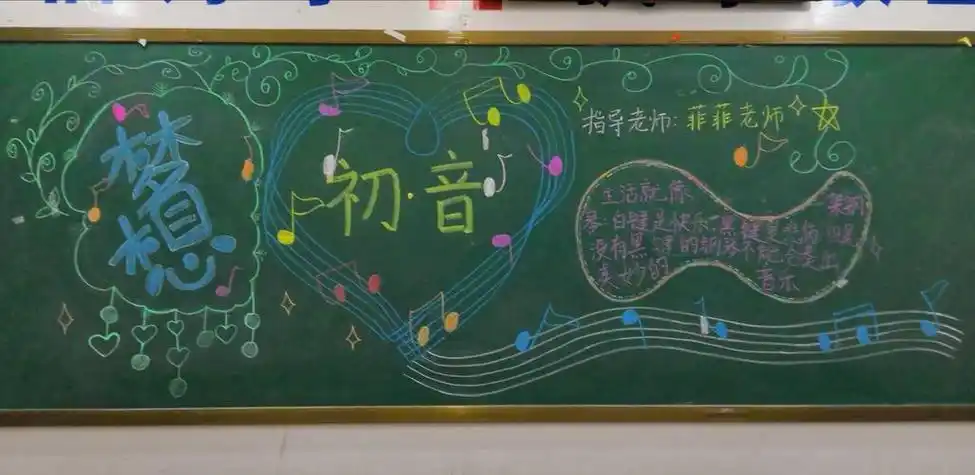 梦想
初·音
指导老师:菲菲老师
生活就像 一架钢
琴·白键是快乐,黑键是悲伤 但是
没有黑键的钢琴不能演奏出
美妙的 音乐